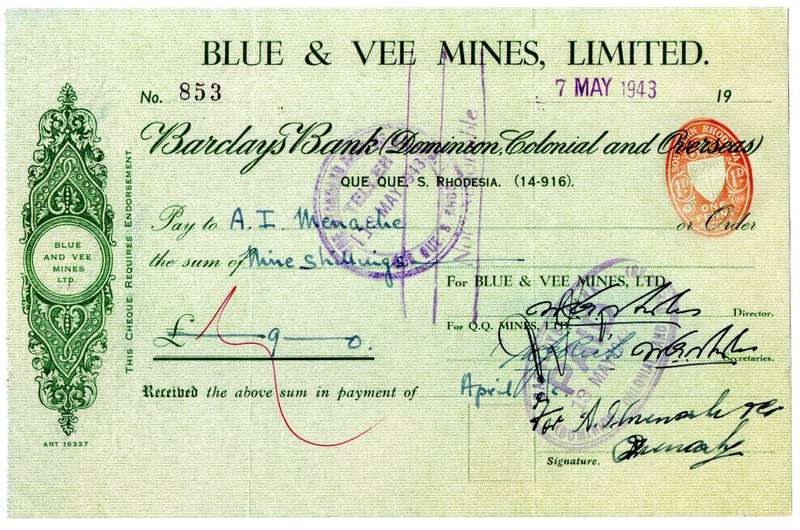 BLUE & VEE MINES, LIMITED.
No. 853
7 MAY 1943 19
Barclays Bank (Dominion, Colonial and Overseas)
QUE QUE, S. RHODESIA. (14-916).
SOUTHERN RHODESIA
ONE PENNY
TELLER
MAY 1943
Not Negotiable
THIS CHEQUE REQUIRES ENDORSEMENT.
BLUE
AND VEE
MINES
LTD.
Pay to A. I. Menache or Order
the sum of Nine shillings
For BLUE & VEE MINES, LTD.
Director.
For Q.Q. MINES, LTD.
Secretaries.
£ 9 0.
PAID
MAY
Received the above sum in payment of April
for A. I. Menache
Signature.
ART 16337